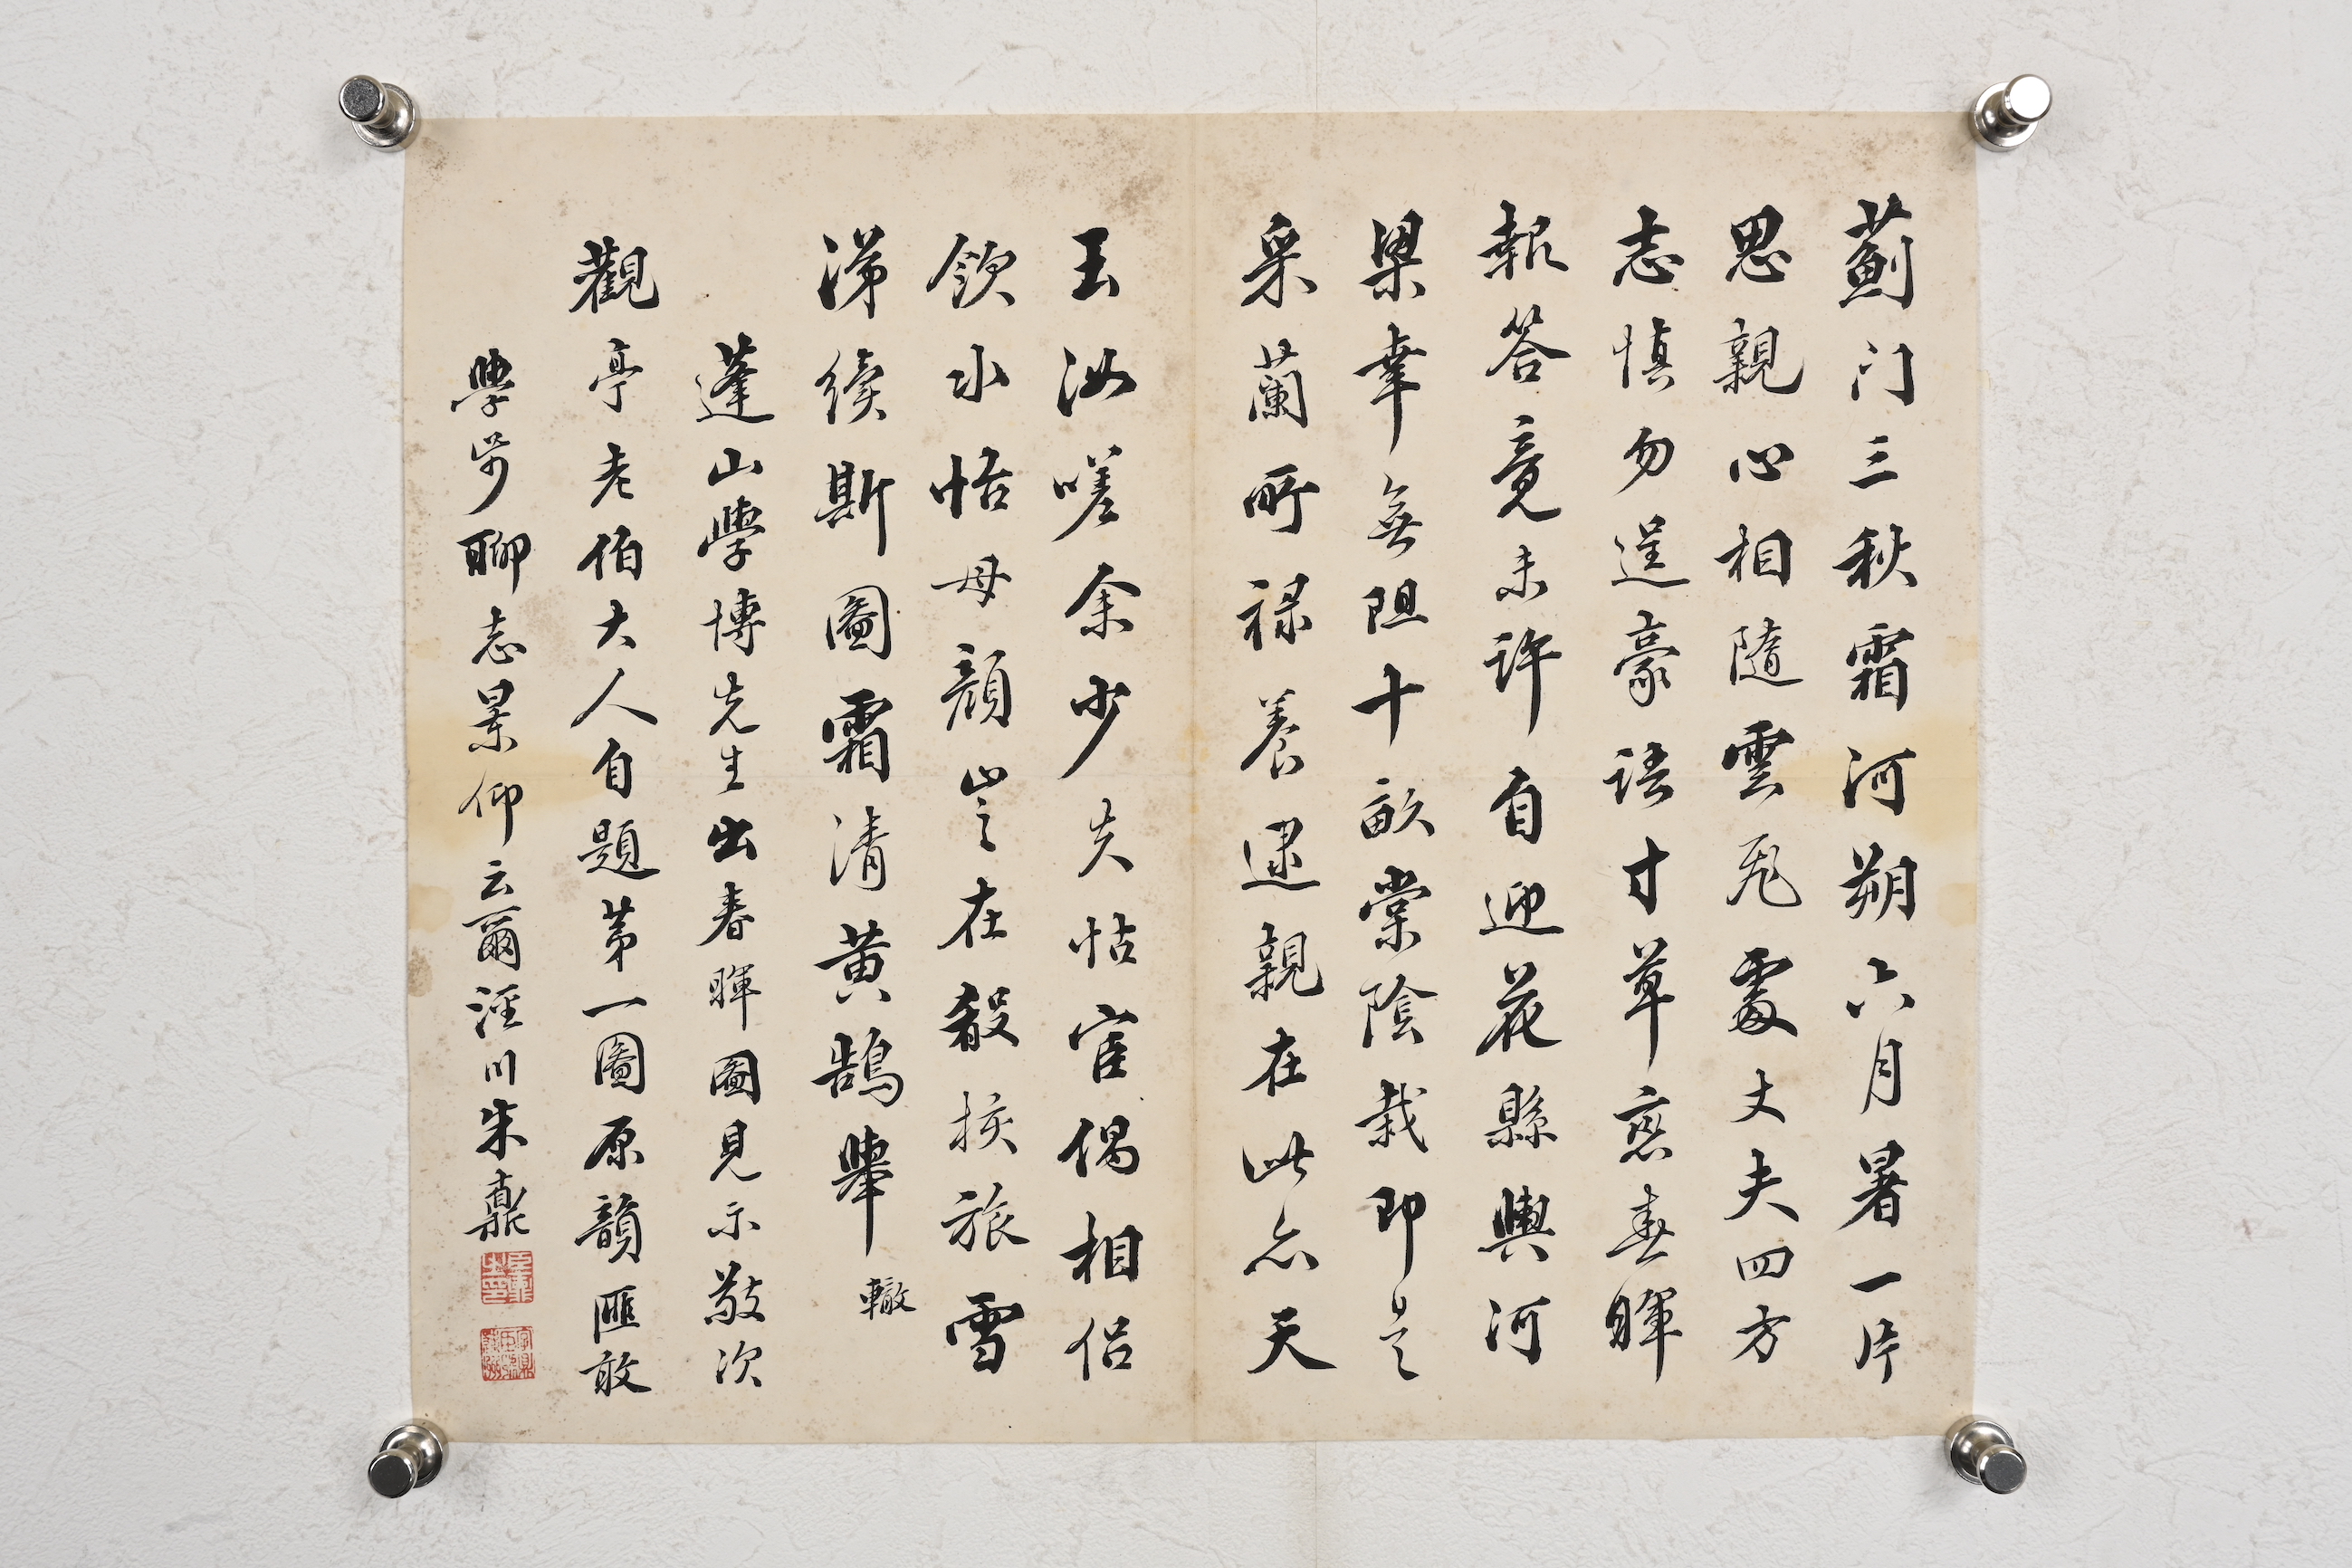 薊门三秋霜河朔六月暑一片
思親心相隨雲飛處丈夫四方
志慎勿逞豪語寸草戀春暉
報答竟未許自迎花縣輿河
梁幸無阻十畝棠陰栽即是
采蘭所祿養逮親在此亦天
玉汝嗟余少失怙宦偶相侣
飲水怡母顔豈在殽核旅雪
涕續斯圖霜清黄鵠舉 轍
蓬山學博先生出春暉圖見示敬次
觀亭老伯大人自題苐一圖原韻匪敢
學步聊志景仰云爾涇川朱鼒